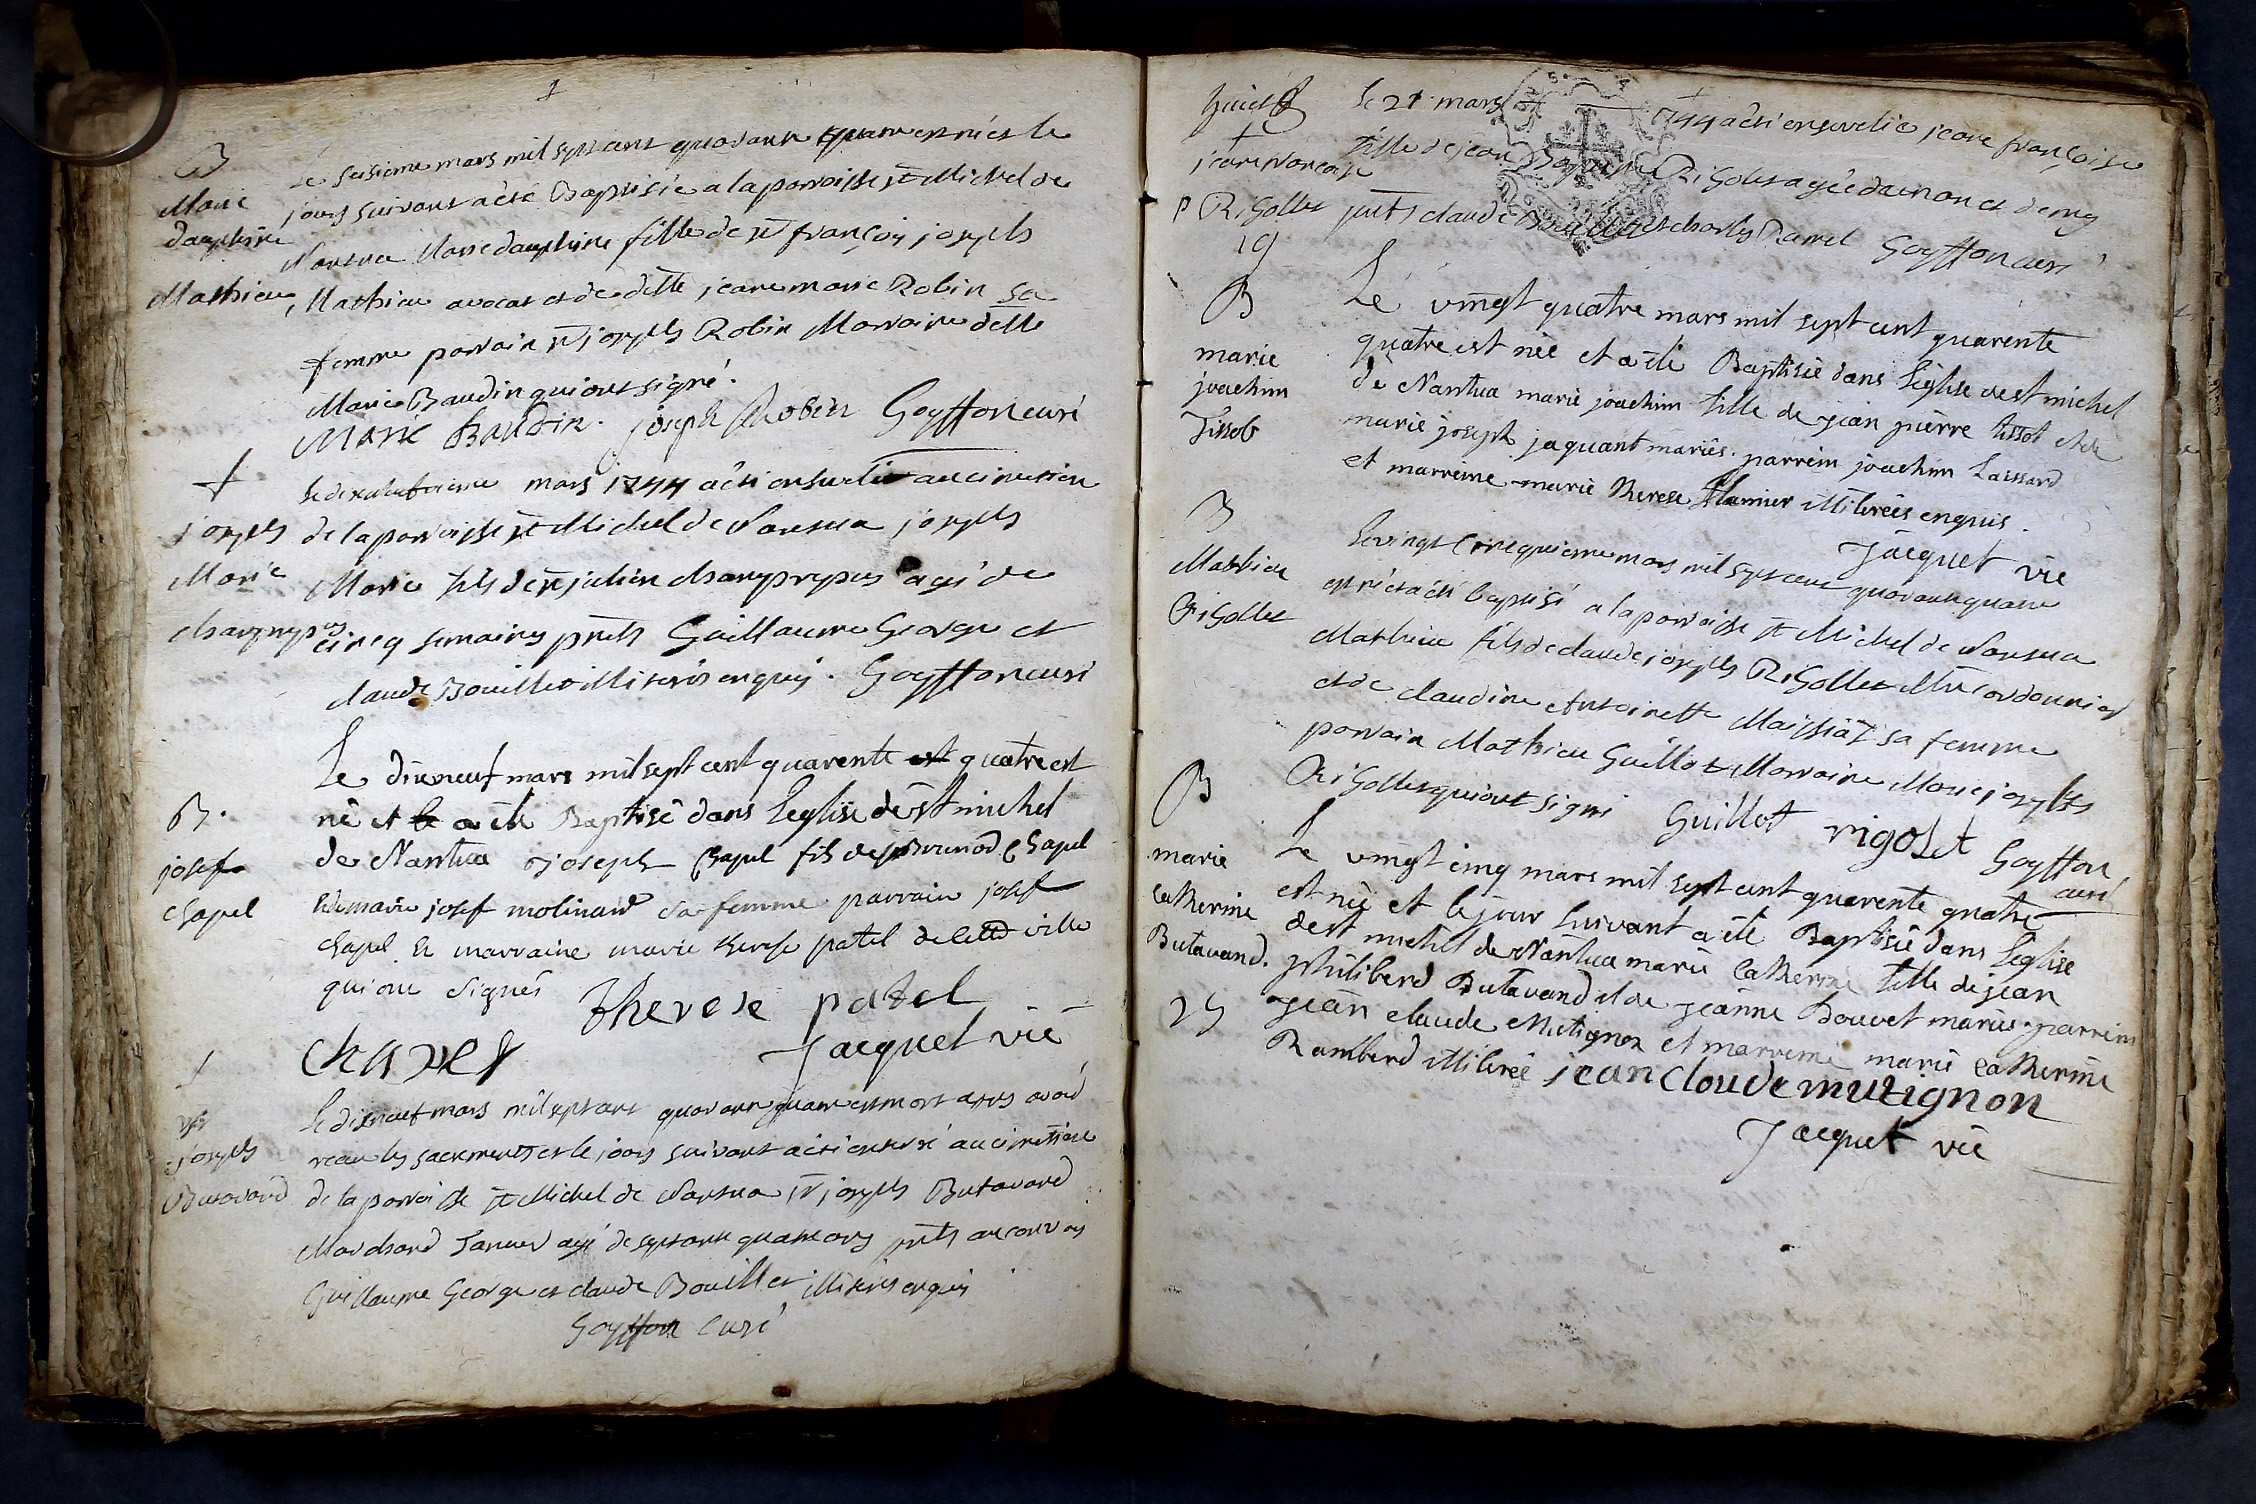 B
Marie
dauphine
Mathieu
Le seisieme mars mil sept cent quarante quatre est née et le
jours suivant a été Baptisée a la parroisse st Michel de
Nantua Marie dauphine fille de sr françois joseph
Mathieu avocat et de delle jeane marie Robin sa
femme parrain sr joseph Robin Marraine delle
Marie Baudin qui ont signé.
Marie Baudin. joseph Robin Goyffon curé
joseph
Marie
mars 1744 a été ensuelie au cimetiere
de la parroisse st Michel de Nantua joseph
Marie fils de sr julien agé de
cincq semaines pnts Guillaume George et
claude Bouillet illiterés enquis. Goyffon curé
B.
josef
chapel
Le dixneuf mars mil sept cent quarente est quatre est
né et le a été Baptisé dans l'eglise de st michel
de Nantua joseph chapel fils de Brunod chapel
et de marie josef molinard sa femme parrain josef
chapel et marraine marie therese patel de cette ville
qui ont signés therese patel
chapel Jacquet vic
sr
joseph
Butavand
Le dixneuf mars mil sept cent quarante quatre est mort apres avoir
receu les sacrements et le jours suivant a été enterré au cimetiere
de la parroisse st Michel de Nantua sr joseph Butavand
Marchand Taneur agé de septante quatre ans pnts au convoy
Guillaume George et claude Bouillet illiterés enquis
Goyffon curé
jeane francoise
Rigollet
19
Le 21 mars 1744 a été ensevelie jeane françoise
fille de jean Baptiste Rigolet agée d'un an et demy
pnts claude Bouillet et charles Ravet Goyffon curé
B
marie
joachim
Tissot
Le vingt quatre mars mil sept cent quarente
quatre est née et a été Baptisée dans l'eglise de st michel
de Nantua marie joachim fille de jean pierre tissot et de
marie joseph jaquant mariés. parrein joachim Laissard
et marreine marie therese illiterées enquis.
Jacquet vic
B
Mathieu
Rigollet
Le vingt cinequieme mars mil sept cent quarante quatre
est né et a été baptisé a la parroisse st Michel de Nantua
Mathieu fils de claude joseph Rigollet Mtre cordonnier
et de claudine Antoinette Maissiat sa femme
parrain Mathieu Guillot Marraine Marie joseph
Rigollet qui ont signé Guillot rigolet Goyffon
curé
B
marie
catherine
Butavand.
25
Le vingt cinq mars mil sept cent quarente quatre
est née et le jour suivant a été Baptisée dans l'eglise
de st michel de Nantua marie catherine fille de jean
philiberd Butavand et de jeanne Bouvet mariés. parrein
jean claude Mutignon et marreine marie catherine
Ramberd illiterée jean cloude mutignon
Jacquet vic